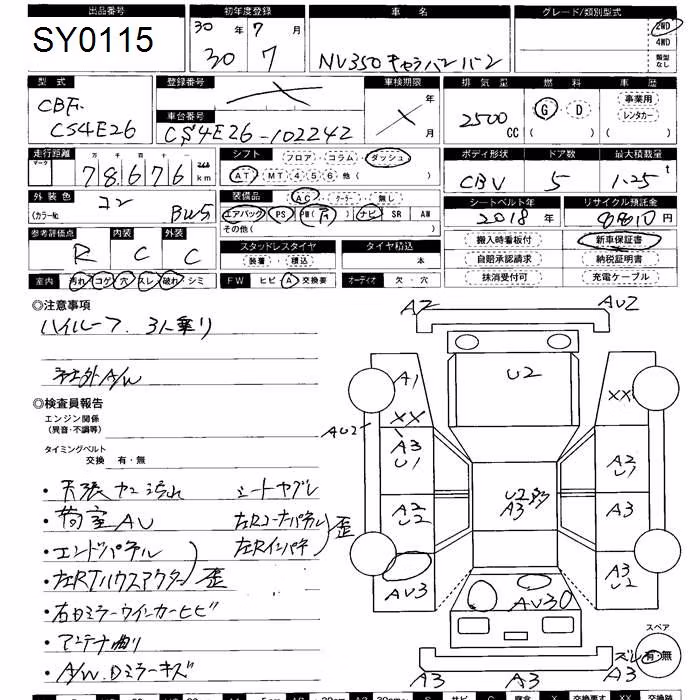 出品番号 初年度登録 車名 グレード/類別型式
SY0115 30年 7月 2WD
30 7 NV350キャラバンバン 4WD
類型なし
型式 登録番号 車検期限 排気量 燃料 車歴
CBF- 年 G D 事業用
CS4E26 車台番号 2500 CC レンタカー
CS4E26-102242 月 ( ) ( )
走行距離 シフト フロア コラム ダッシュ ボディ形状 ドア数 最大積載量
マーク 十万 万 千 百 十 マイル
78676 km AT MT 4 5 6 他( ) CBV 5 1.25 t
外装色 装備品 AC クーラー 無し シートベルト年 リサイクル預託金
(カラーNo. コン BW5 エアバック PS PW ナビ SR AW 2018年 8810円
その他( )
参考評価点 内装 外装 搬入時看板付 新車保証書
R C C スタッドレスタイヤ タイヤ積込 自賠承認請求 納税証明書
装着 積込 本 抹消受付可 充電ケーブル
室内 汚れ コゲ 穴 スレ 破れ シミ FW ヒビ A 交換要 オーディオ 欠・穴
◎注意事項
ハイルーフ. 3人乗り
社外A/W
◎検査員報告
エンジン関係
(異音・不調等)
タイミングベルト
交換 有・無
・天張ヤニ汚れ シートヤブレ
・荷室AU 左Rコーナパネル 歪
・エンドパネル 左Rインパネ
・左RTハウスアウター 歪
・右Dミラーウインカーヒビ
・アンテナ曲り
・A/W.Dミラーキズ
A2 AU2
U2
A1 XX
XX
AU2
A3 U1 A2 U1
U2 A3
A2 U2 A3
AU3 AU30 A3 U2
スペア
ズレ 有・無
A3 A3 A3